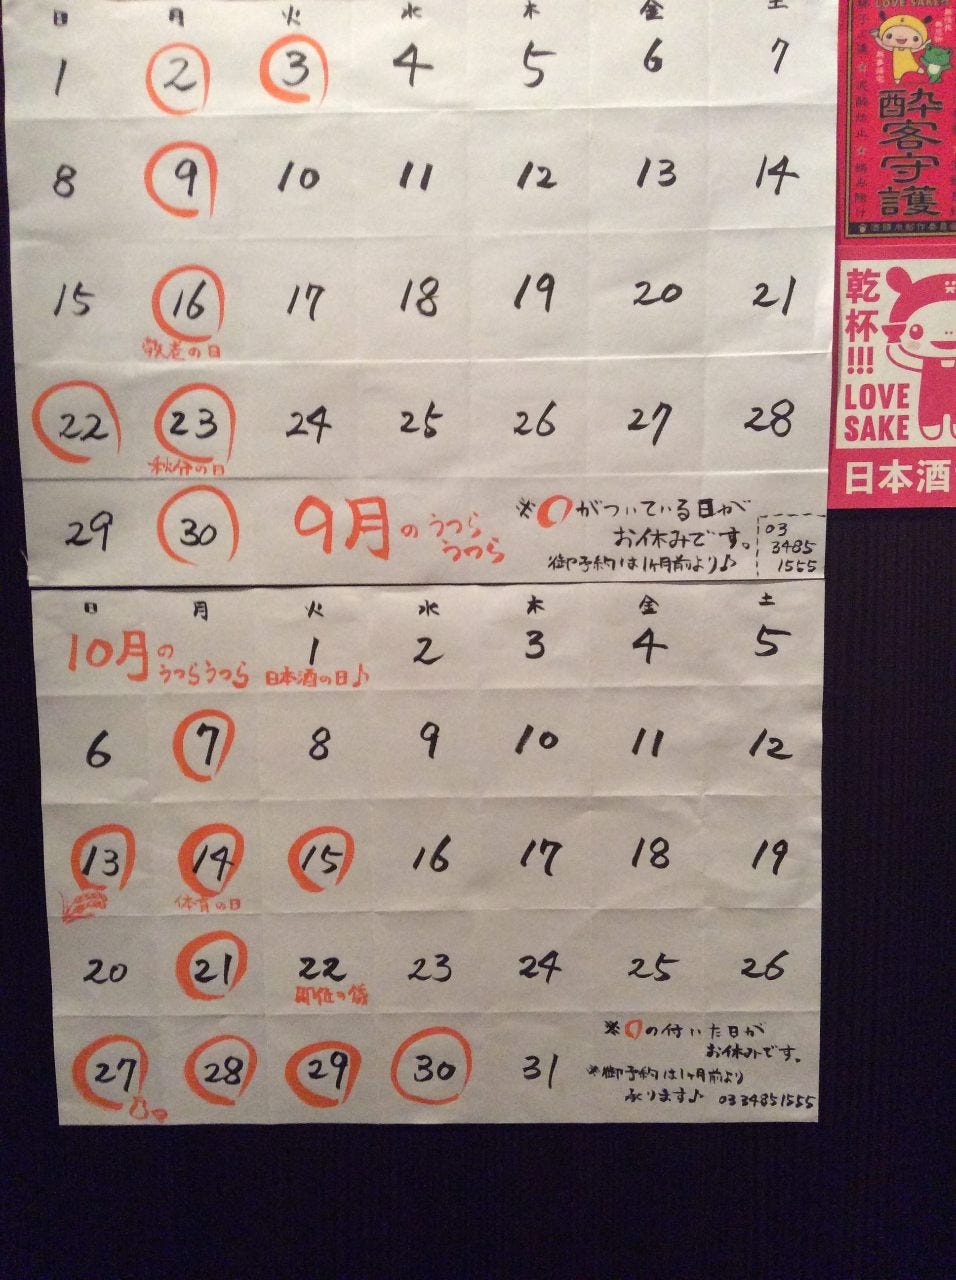 日 月 火 水 木 金 土
1 2 3 4 5 6 7
8 9 10 11 12 13 14
15 16 17 18 19 20 21
敬老の日
22 23 24 25 26 27 28
秋分の日
29 30
9月のうつら
うつら
※○がついている日が
お休みです。
御予約は1ヶ月前より♪
03
3485
1555
日 月 火 水 木 金 土
10月の
うつらうつら
1 2 3 4 5
日本酒の日♪
6 7 8 9 10 11 12
13 14 15 16 17 18 19
体育の日
20 21 22 23 24 25 26
即位の儀
27 28 29 30 31
※○の付いた日が
お休みです。
※御予約は1ヶ月前より
承ります♪ 03 3485 1555
LOVE SAKE
酔客守護
乾杯!!!
LOVE
SAKE
日本酒